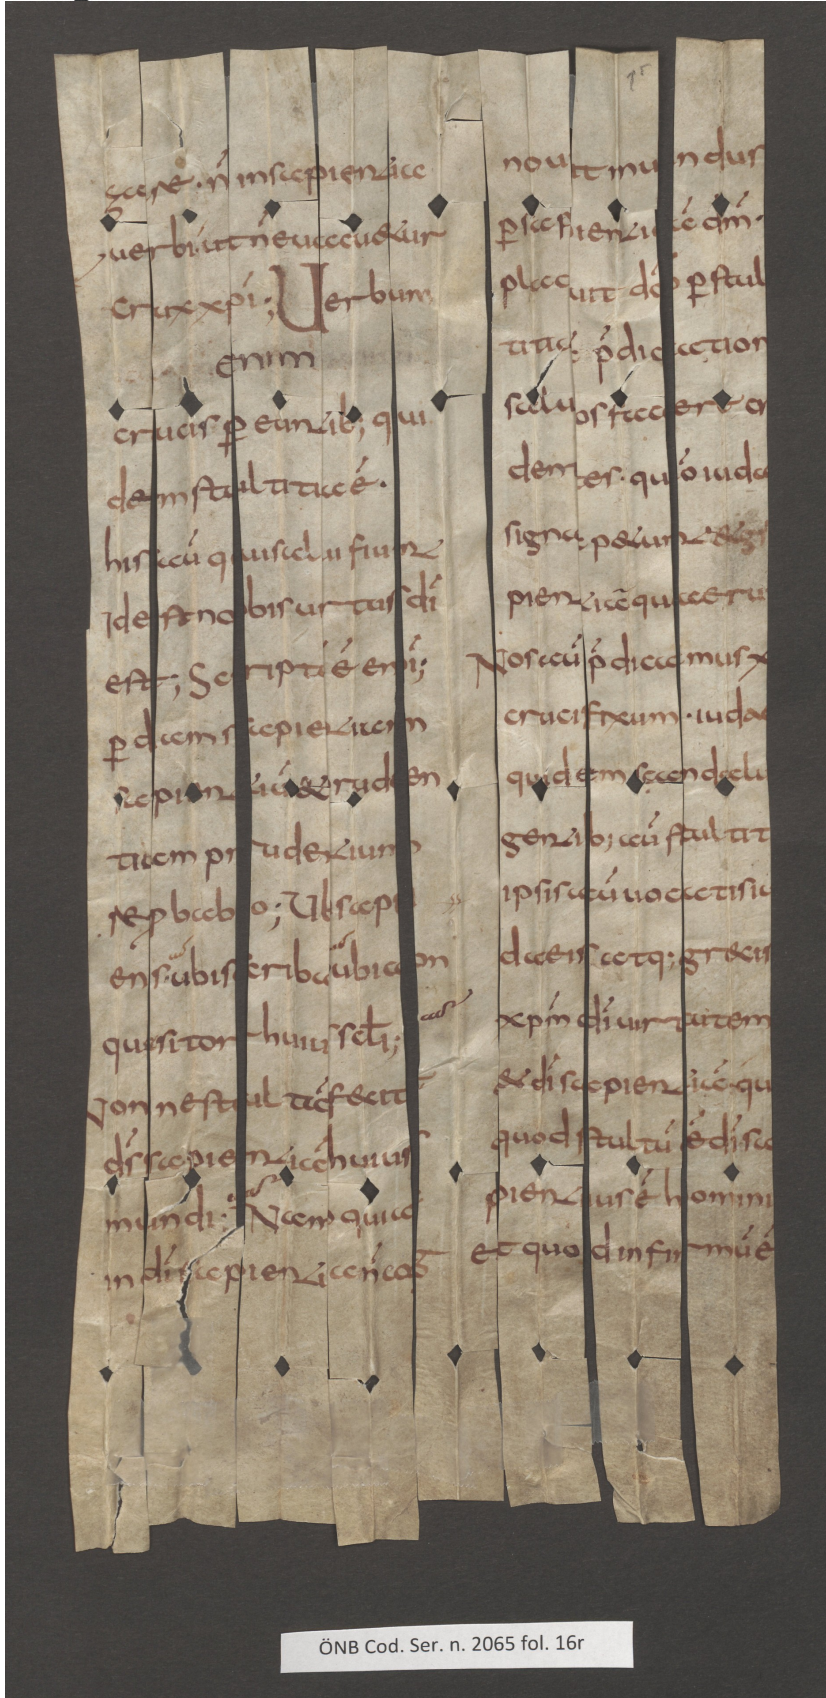 gare · n̄ insapientia
verbi ut n̄ evacuetur
crux xp̄i ; Verbum
enim
crucis p̱euntib; qui
dem stultitia ē ·
his aū qui salvi fiunt
Id est nobis virtus dī
est ; Scriptū ē enī ;
p̱dam sapientiam
sapientiū & pruden
tiam prudentium
rep̱babo ; Ubi sapi
ens · ubi scriba ubi con
quisitor huius scl̄i ;
Nonne stultā fecit
dS sapientiā huius
mundi : Nam quia
in dī sapientia n̄ cog
novit mundus
p̱ sapientiā dm̄ ·
placuit dō p̱ stul
titiā p̄dication
salvos facere cr
dentes · quō iudae
signa petunt & g
pientiā quaeru
Nos aū p̄dicamus x
crucifixum · iudae
quidem scandalu
gentib; aū stultit
ipsis aū vocatis iu
daeis atq; grecis
xpm̄ dī virtutem
& dī sapientiā · qu
quod stultū ē dī sa
pientius ē homini
et quod infirmū ē
ÖNB Cod. Ser. n. 2065 fol. 16r